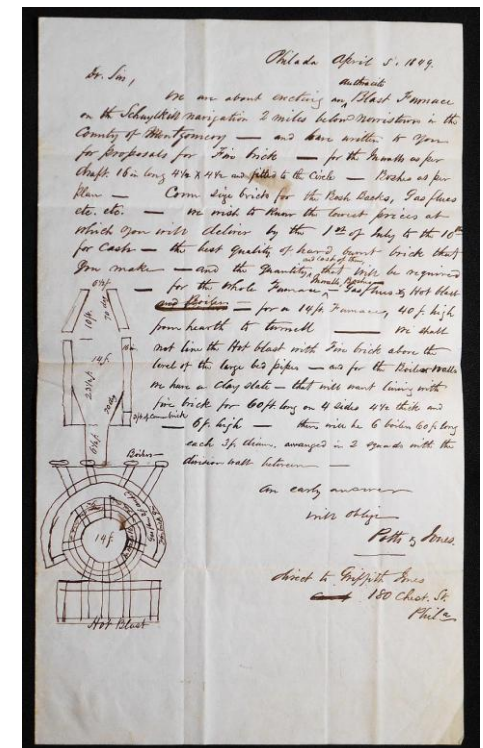 Philada April 5. 1849.
Dr. Sir,
Anthracite
We are about erecting an Blast Furnace
on the Schuylkill navigation 2 miles below Norristown in the
County of Montgomery — and have written to you
for proposals for Fire brick — for the Inwalls as per
draft. 16 in long 4½ x 4½ and fitted to the Circle — Boshes as per
plan — Com size brick for the Bosh Backs, Gas flues
etc. etc. — we wish to know the lowest prices at
which you will deliver by the 1st of July to the 10th
for Cash — the best quality of hard burnt brick that
and cash of the
you make — and the quantity that will be required
Inwalls Boshes
— for the whole Furnace — Gas flues & Hot blast
and Boilers — for a 14 ft. Furnace, 40 ft. high
from hearth to tunnell — we shall
not line the Hot blast with Fire brick above the
level of the large bed pipes — and for the Boiler Walls
we have a clay slate — that will want lining with
fire brick for 60 ft. long on 4 sides 4½ thick and
— 6 ft. high — there will be 6 boilers 60 ft. long
each 3 ft. diam. arranged in 2 squads with the
division wall between —
an early answer
will oblige
Potts & Jones.
direct to Griffith Jones
180 Chest. St.
Phila
10 ft.
14 f.
70 deg
Boilers
14 f.
Hot Blast